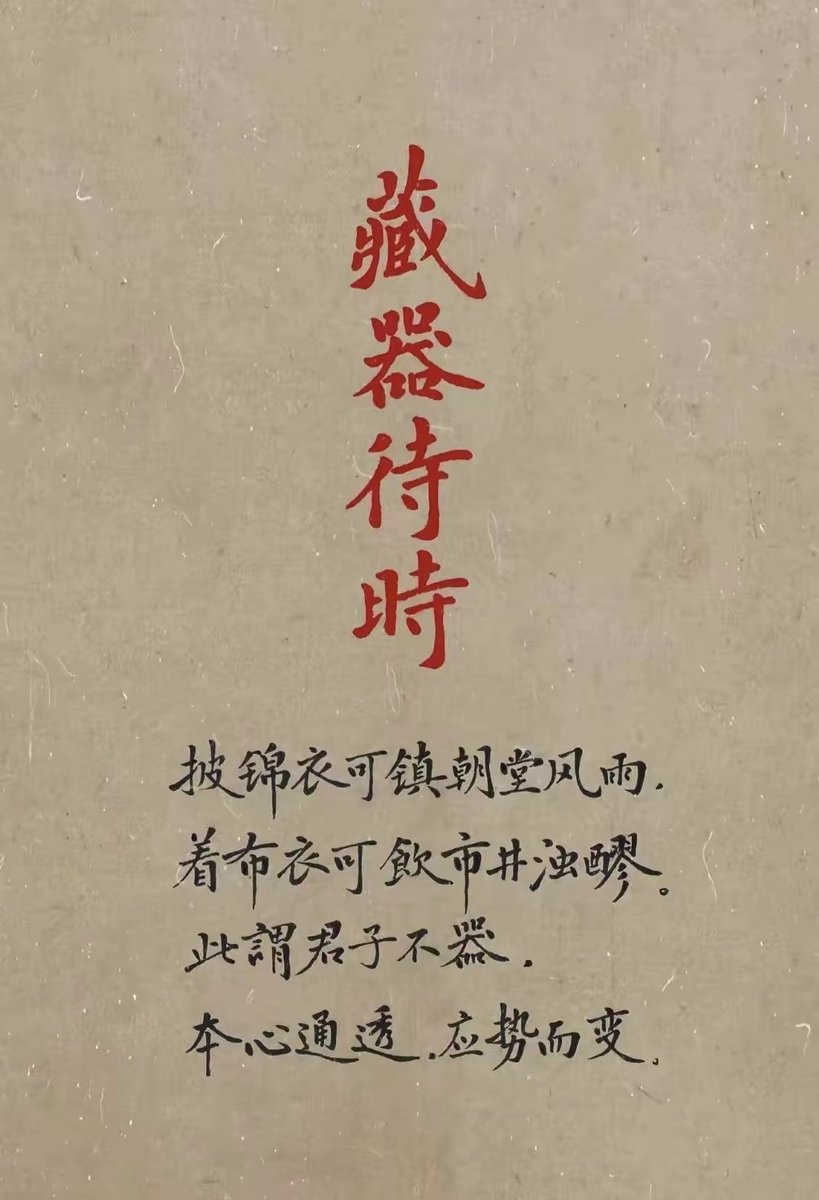 藏器待時
披锦衣可镇朝堂风雨.
着布衣可飲市井浊醪。
此謂君子不器.
本心通透.应势而变.